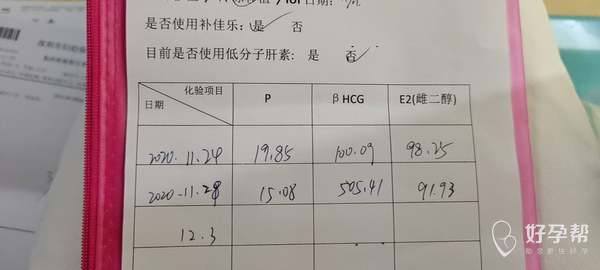 是否使用补佳乐: 是 否
目前是否使用低分子肝素: 是 否
化验项目 P βHCG E2(雌二醇)
日期
2020.11.24 19.85 100.09 98.25
2020-11.28 15.08 505.41 91.93
12.3
好孕帮